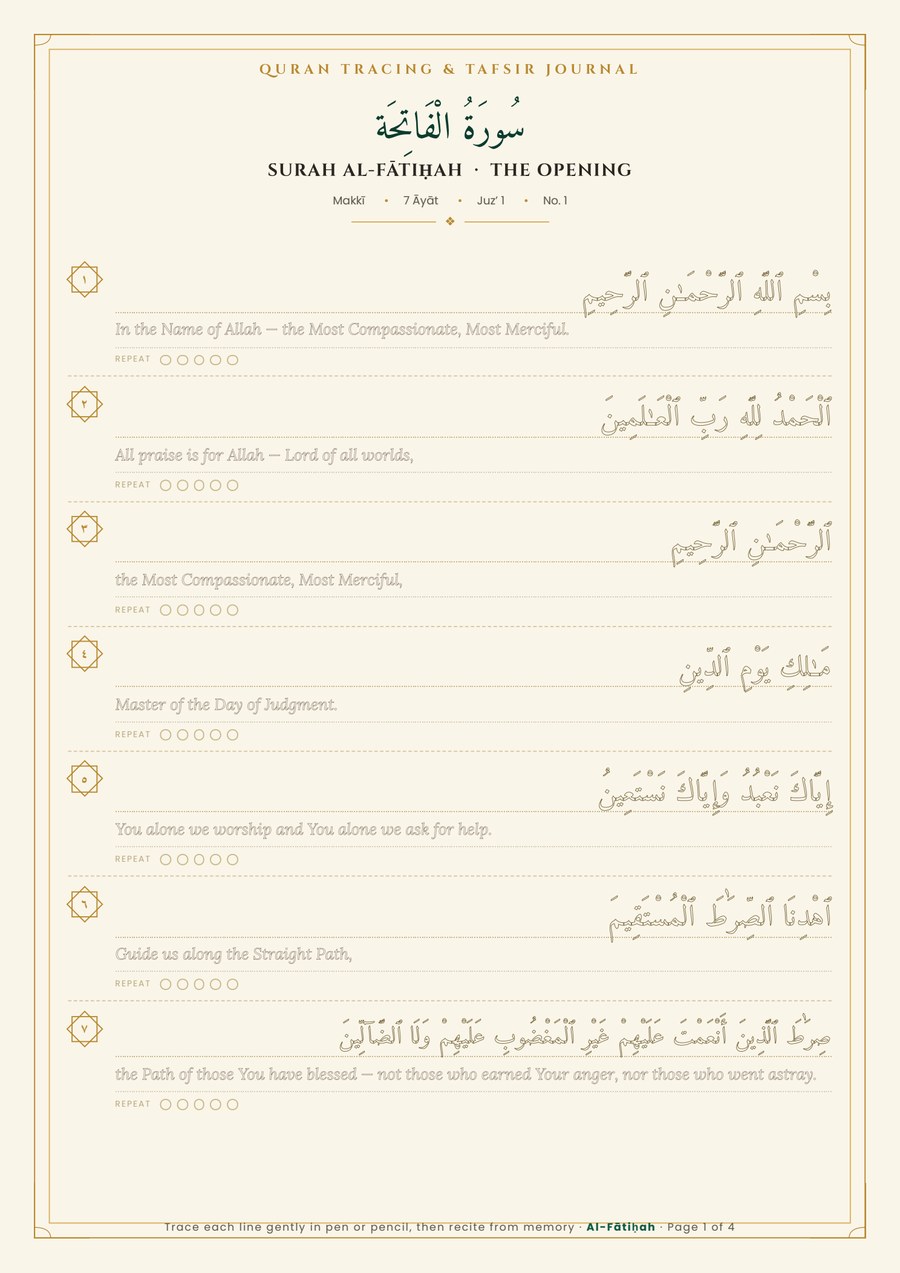 QURAN TRACING & TAFSIR JOURNAL
سُورَةُ الْفَاتِحَة
SURAH AL-FĀTIḤAH · THE OPENING
Makkī • 7 Āyāt • Juz’ 1 • No. 1
١
بِسْمِ ٱللَّهِ ٱلرَّحْمَـٰنِ ٱلرَّحِيمِ
In the Name of Allah — the Most Compassionate, Most Merciful.
REPEAT
٢
ٱلْحَمْدُ لِلَّهِ رَبِّ ٱلْعَـٰلَمِينَ
All praise is for Allah — Lord of all worlds,
REPEAT
٣
ٱلرَّحْمَـٰنِ ٱلرَّحِيمِ
the Most Compassionate, Most Merciful,
REPEAT
٤
مَـٰلِكِ يَوْمِ ٱلدِّينِ
Master of the Day of Judgment.
REPEAT
٥
إِيَّاكَ نَعْبُدُ وَإِيَّاكَ نَسْتَعِينُ
You alone we worship and You alone we ask for help.
REPEAT
٦
ٱهْدِنَا ٱلصِّرَٰطَ ٱلْمُسْتَقِيمَ
Guide us along the Straight Path,
REPEAT
٧
صِرَٰطَ ٱلَّذِينَ أَنْعَمْتَ عَلَيْهِمْ غَيْرِ ٱلْمَغْضُوبِ عَلَيْهِمْ وَلَا ٱلضَّآلِّينَ
the Path of those You have blessed — not those who earned Your anger, nor those who went astray.
REPEAT
Trace each line gently in pen or pencil, then recite from memory · Al-Fātiḥah · Page 1 of 4